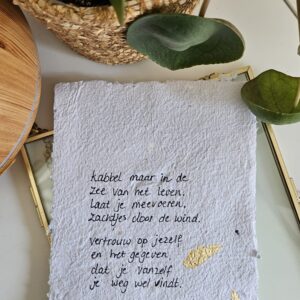 kabbel maar in de
zee van het leven.
Laat je meevoeren,
zachtjes door de wind.
vertrouw op jezelf
en het gegeven
dat je vanzelf
je weg wel vindt.